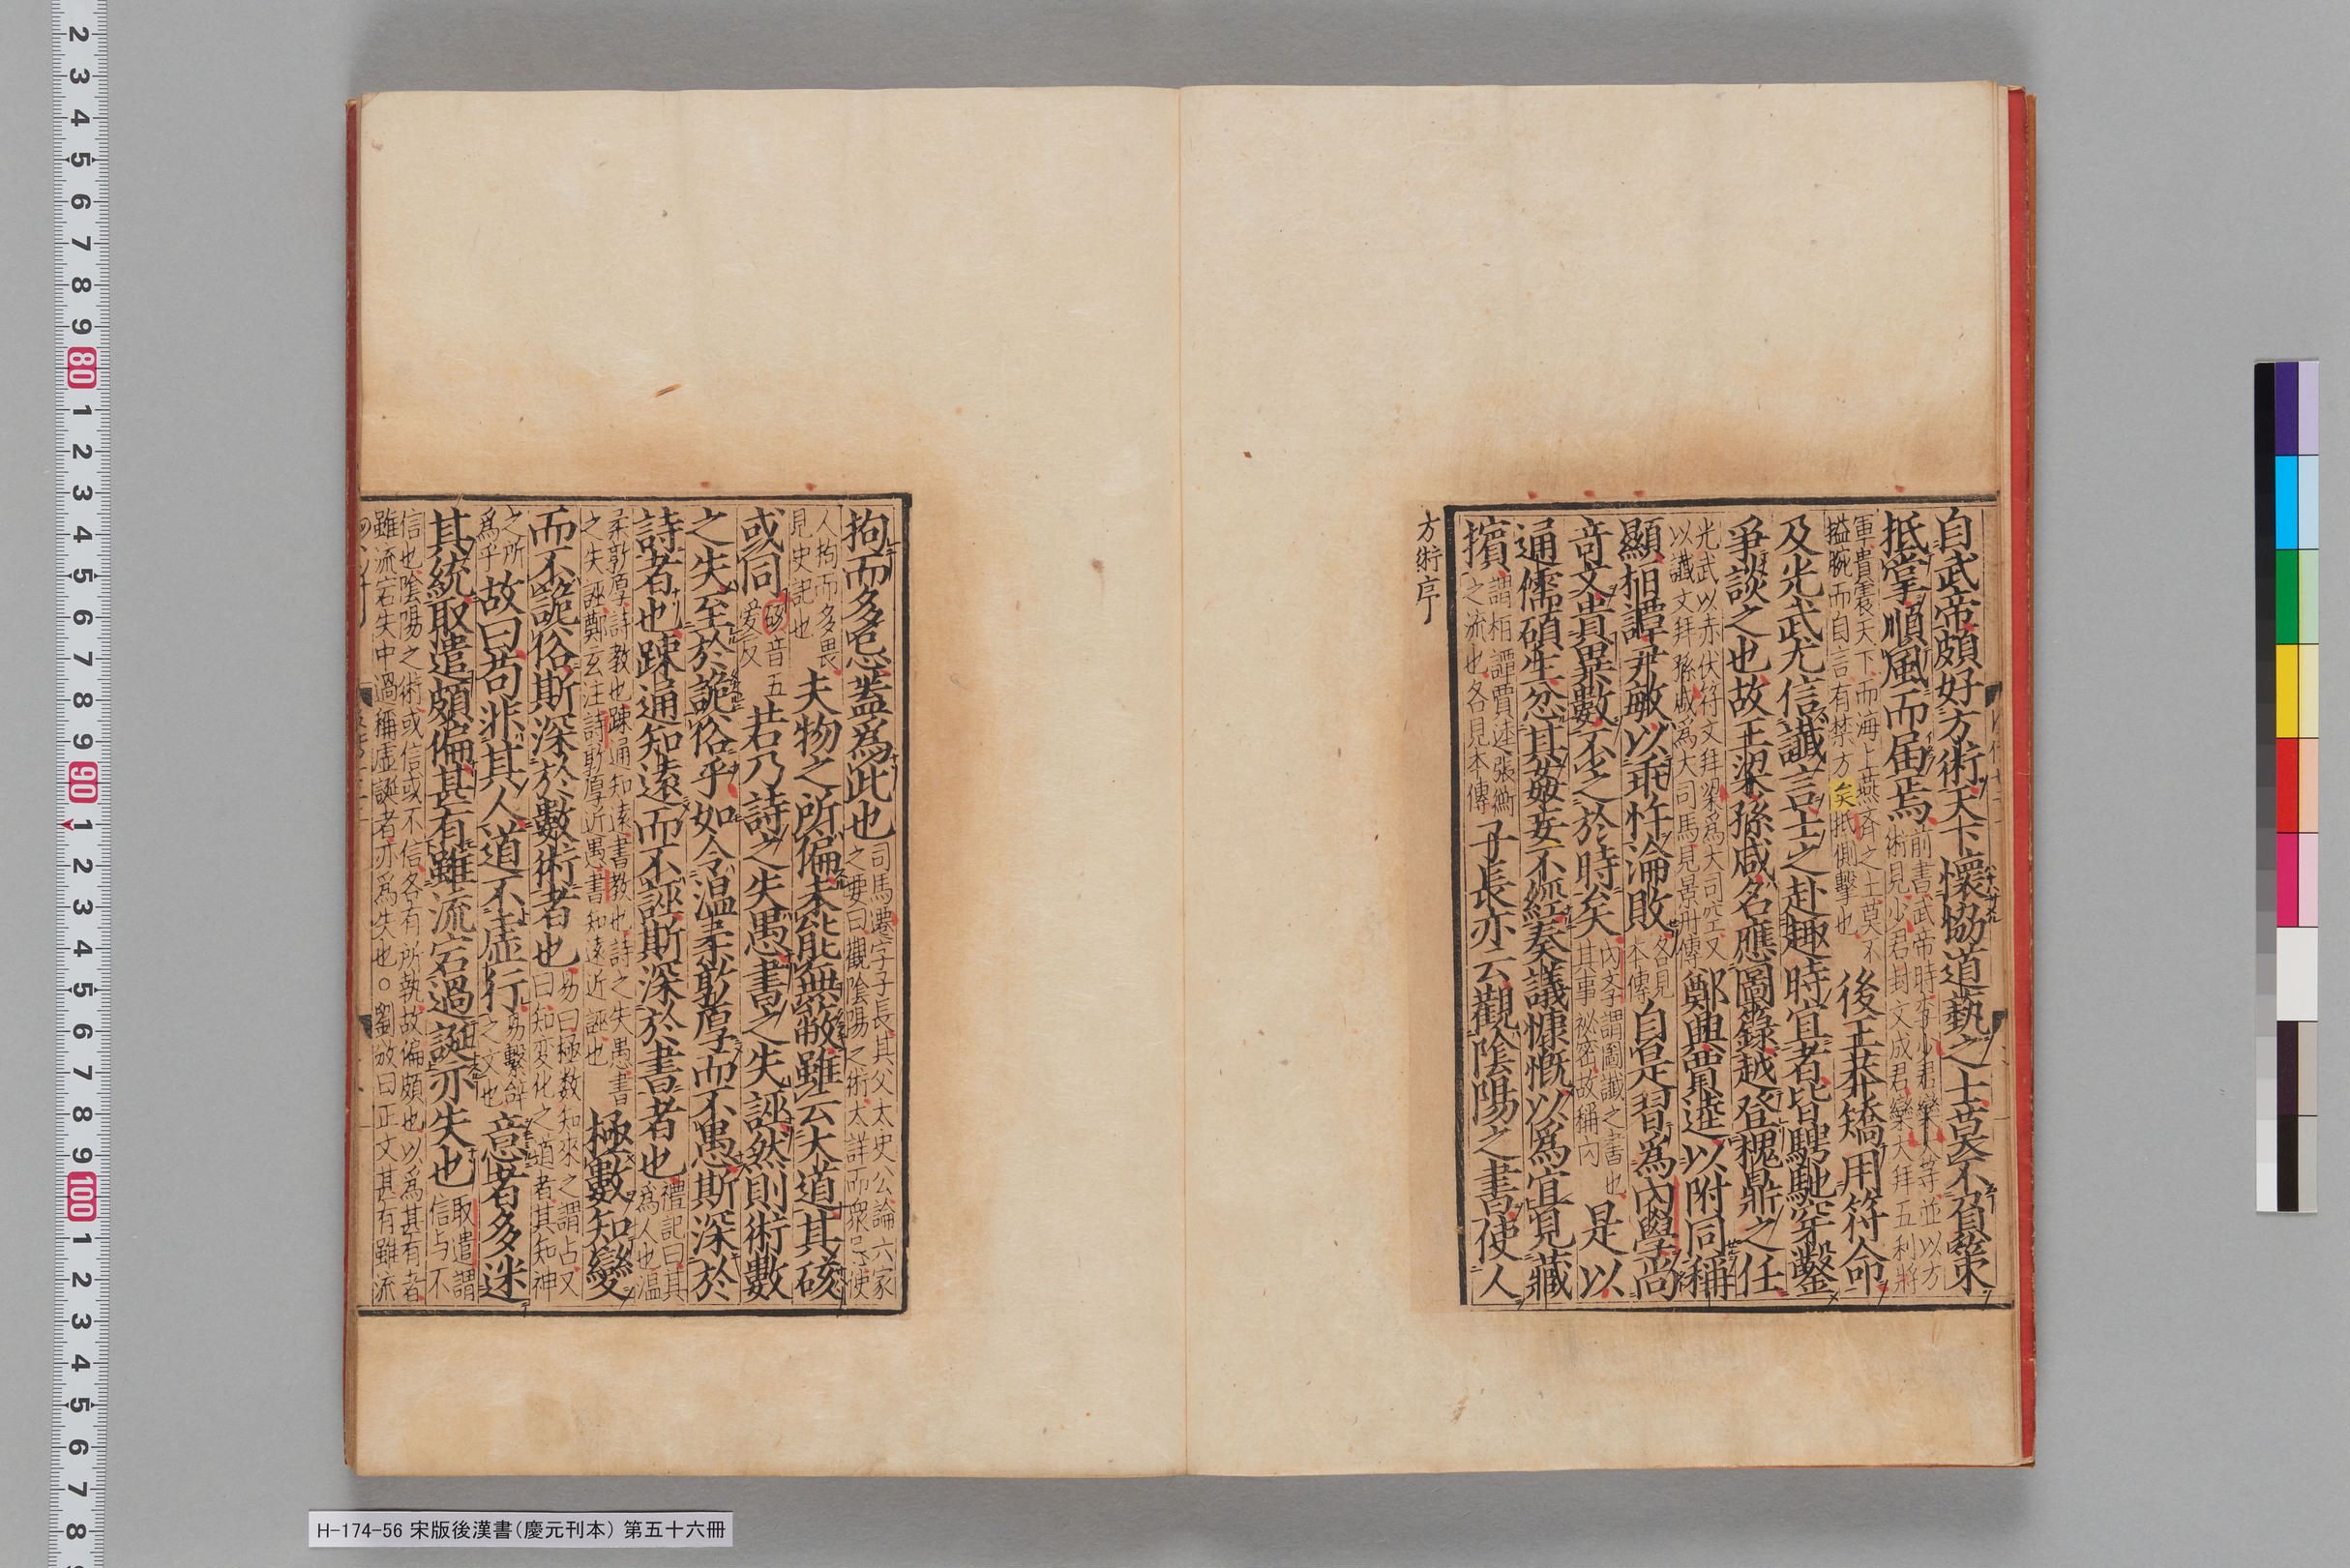 自武帝頗好方術天下懷協道藝之士莫不負策
抵掌順風而届焉前書武帝時有少君欒大等並以方
術見少君封文成君欒大拜五利將
軍貴震天下而海上燕齊之士莫不
搤腕而自言有禁方矣抵側擊也後王莽矯用符命
及光武尤信讖言士之赴趣時宜者皆騁馳穿鑿
爭談之也故王梁孫咸名應圖籙越登槐鼎之任
光武以赤伏符文拜梁爲大司空又
以讖文拜孫咸爲大司馬見景丹傳鄭興賈逵以附同稱
顯桓譚尹敏以乖忤淪敗各見
本傳自是習爲內學尚
竒文貴異數不乏於時矣內學謂圖讖之書也
其事祕密故稱內是以
通儒碩生忿其姦妄不經奏議慷慨以爲宜見藏
擯謂桓譚賈逵張衡
之流也各見本傳子長亦云觀陰陽之書使人
方術序
拘而多忌蓋爲此也司馬遷字子長其父太史公論六家
之要曰觀陰陽之術太詳而衆忌使
人拘而多畏
見史記也夫物之所偏未能無蔽雖云大道其硋
或同硋音五
爱反若乃詩之失愚書之失誣然則術數
之失至於詭俗乎如令温柔敦厚而不愚斯深於
詩者也踈通知遠而不誣斯深於書者也禮記曰其
爲人也温
柔敦厚詩教也踈通知遠書教也詩之失愚書
之失誣鄭玄注詩敦厚近愚書知遠近誣也極數知變
而不詭俗斯深於數術者也易曰極数知來之謂占又
曰知変化之道者其知神
之所
爲乎故曰苟非其人道不虛行易繫辝
之文也意者多迷
其統取遣頗偏甚有雖流宕過誕亦失也取遣謂
信与不
信也陰陽之術或信或不信各有所執故偏頗也以爲甚有者
雖流宕失中過稱虛誕者亦爲失也○劉攽曰正文甚有雖流
H-174-56 宋版後漢書(慶元刊本) 第五十六冊
2 3 4 5 6 7 8 9 80 1 2 3 4 5 6 7 8 9 90 1 2 3 4 5 6 7 8 9 100 1 2 3 4 5 6 7 8